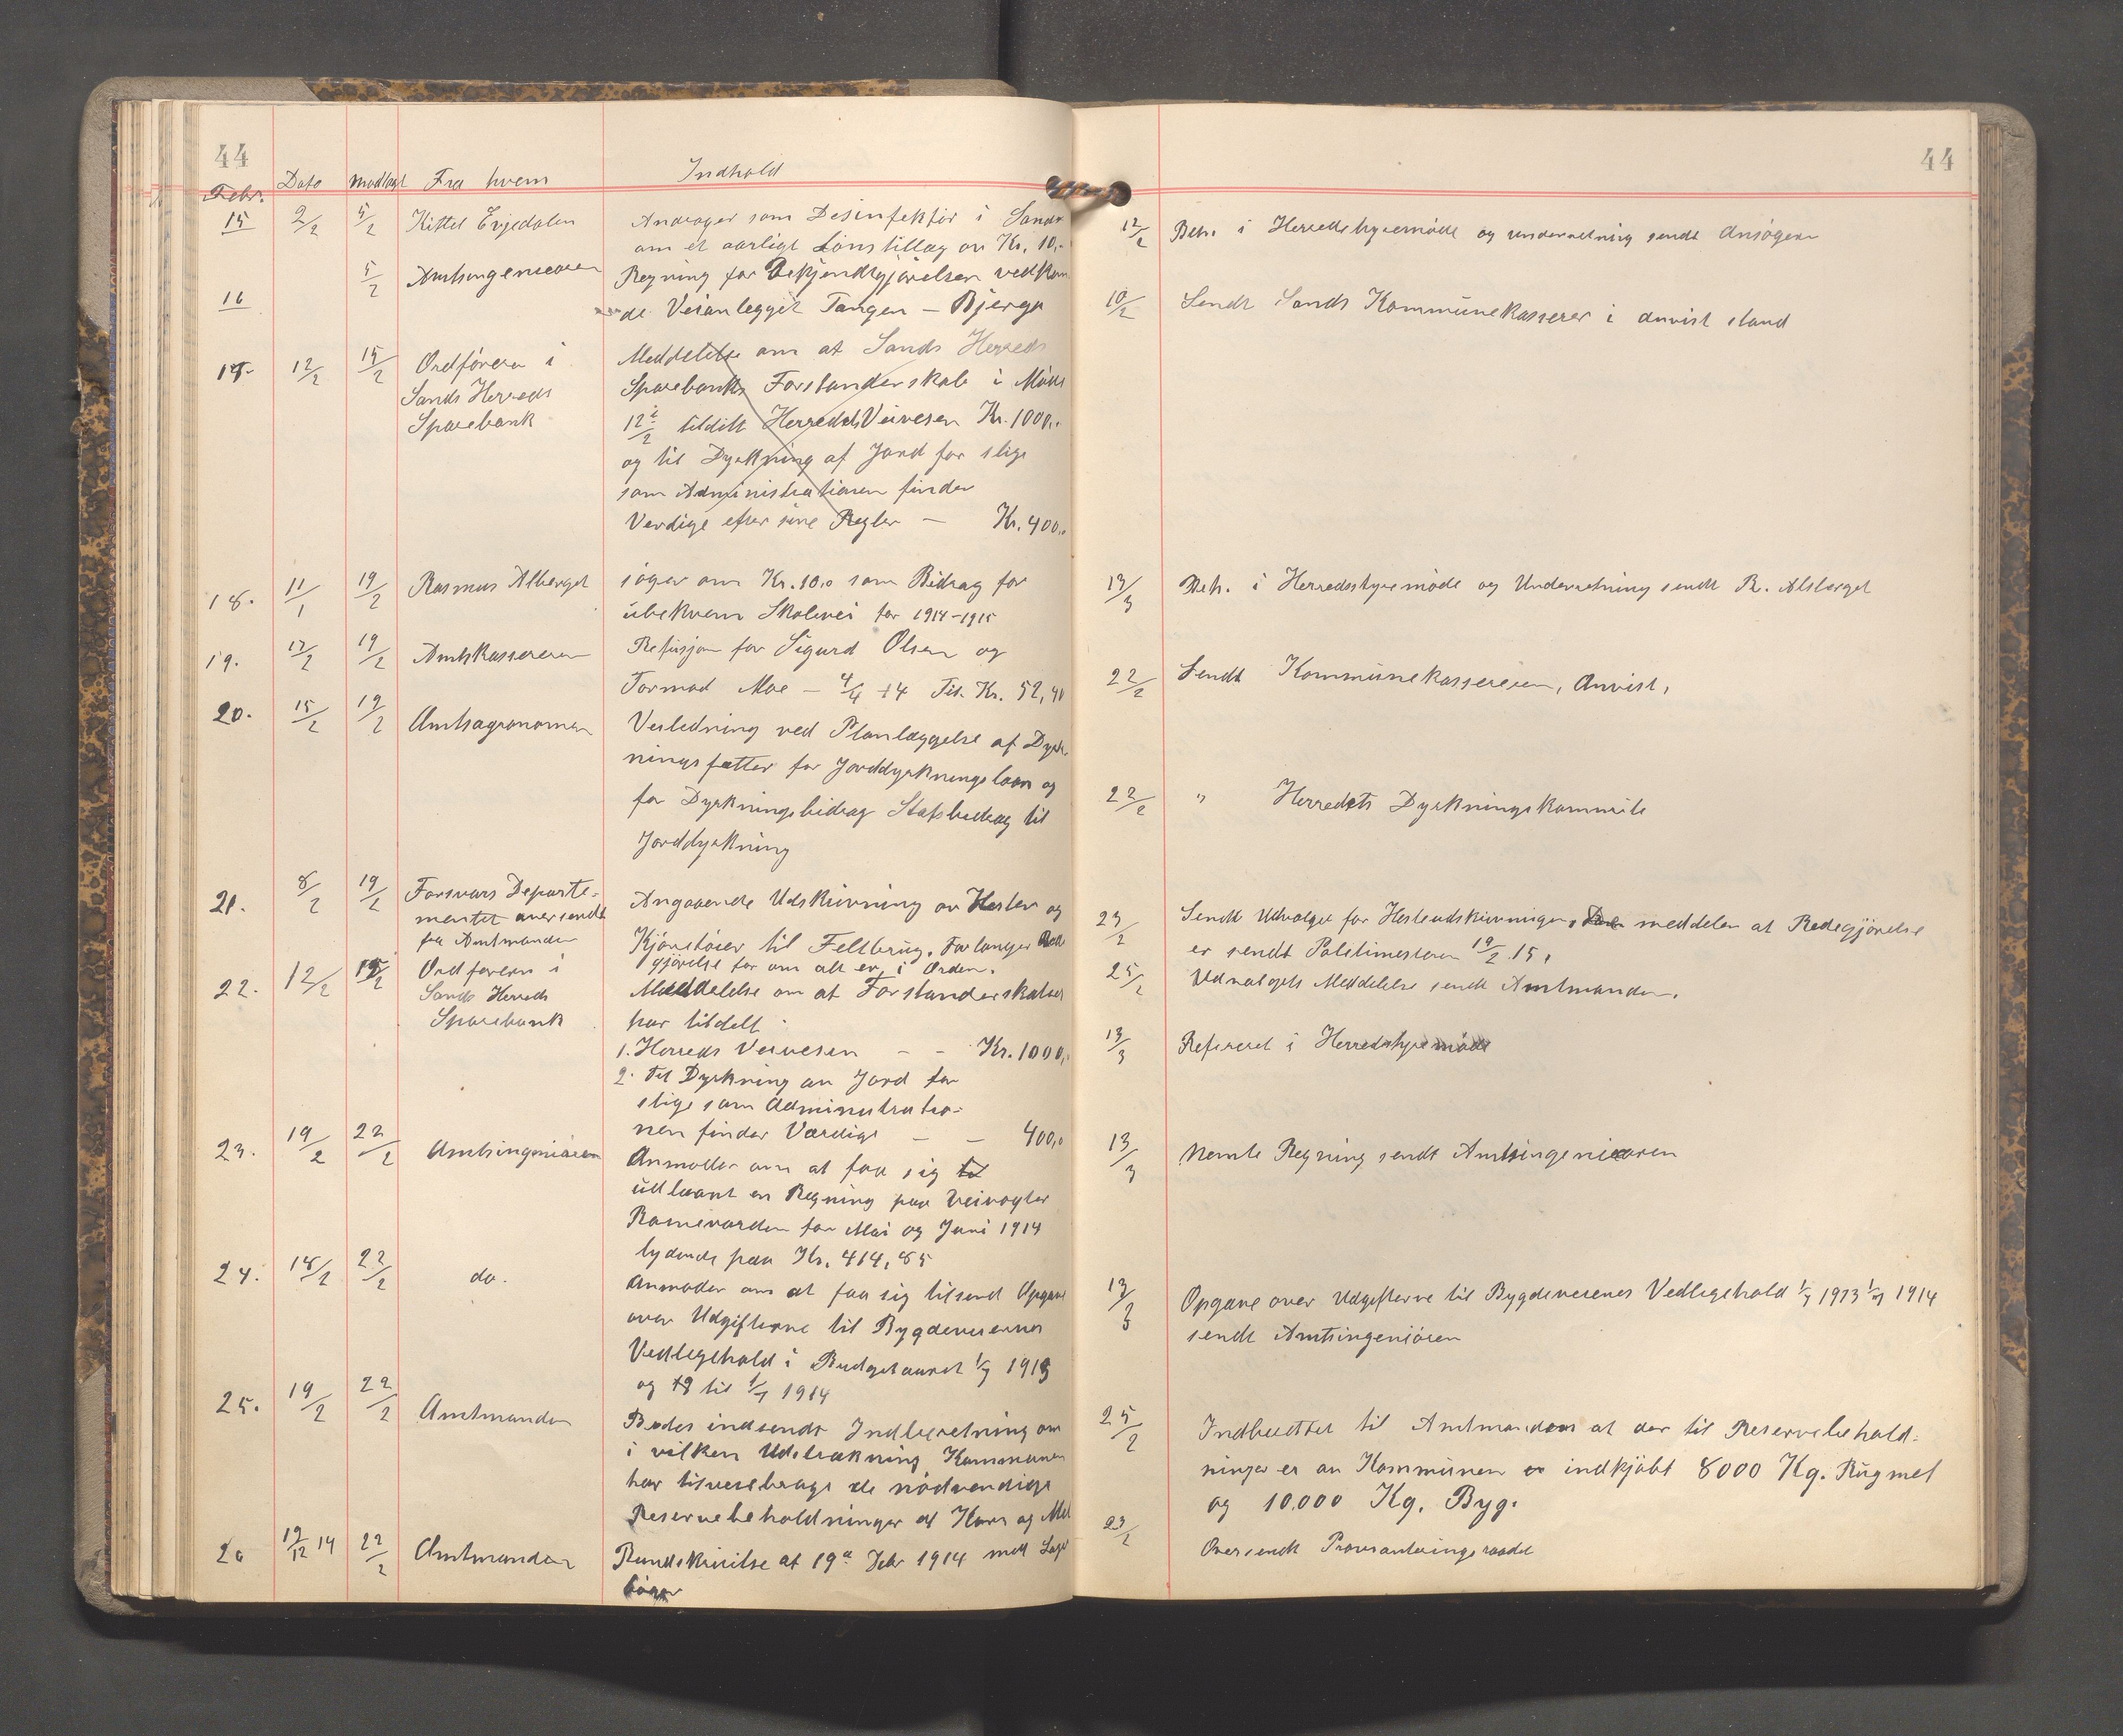 44
Febr. Dato Modtaget Fra hvem Indhold
15 2/2 5/2 Kittel Erjedalen Andrager som Desinfektør i Sands
om et aarligt Lønstillæg av Kr. 10,-
16 5/2 Amtsingeniøren Regning for Bekjendtgjørelser vedkom
de Veianlegget Tangen – Bjerga
17. 12/2 15/2 Ordføreren i Sands Herreds Sparebank
Meddelelse om at Sands Herreds
Sparebanks Forstanderskab i Møde
12te/2 tildelt Herredets Veivesen Kr. 1000,-
og til Dyrkning af Jord for slige
som Administrationen finder
Verdige efter sine Regler – Kr. 400,-
18. 11/1 19/2 Rasmus Alberget søger om Kr. 10,0 som Bidrag for
ubekvem Skolevei for 1914-1915
19. 17/2 19/2 Amtskassereren Refusjon for Sigurd Olsen og
Tormod Moe – 4/4 14 Tils. Kr. 52,40
20. 15/2 19/2 Amtsagronomen Veiledning ved Planlæggelse af Dyrk-
ningsfelter for Jorddyrkningslaan og
for Dyrkningsbidrag Statsbidrag til
Jorddyrkning
21. 8/2 19/2 Forsvars Departe-
mentet oversendt
fra Amtmanden
Angaaende Udskrivning av Hester og
Kjøretøier til Feltbrug. Forlanger Rede
gjørelse for om alt er i Orden.
22. 12/2 15/2 Ordføreren i
Sands Herreds
Sparebank
Meddelelse om at Forstanderskabet
har tildelt
1. Herreds Veivesen – – Kr. 1000,-
2. til Dyrkning av Jord for
slige som Administratio-
nen finder Værdige – – 400,0
23. 19/2 22/2 Amtsingeniøren Anmoder om at faa sig
udlaant en Regning paa Veivogter
Ramevarden for Mai og Juni 1914
lydende paa Kr. 414,85
24. 18/2 22/2 do. Anmoder om at faa sig tilsend Opgave
over Udgifterne til Bygdeveiernes
Vedligehold i Budgetaaret 1/7 1913
og til 1/7 1914
25. 19/2 22/2 Amtmanden Bedes indsendt Indberetning om
i vilken Udstrækning Kommunen
har tilveiebragt de nødvendige
Reservebeholdninger af Korn og Mel
26 19/12 14 22/2 Amtmanden Rundskrivelse af 19de Febr 1914 med
bøger
44
12/2 Beh. i Herredstyremøde og underretning sendt Ansøgeren
10/2 Sendt Sands Kommunekasserer i anvist stand
13/3 Beh. i Herredsstyremøde og Underretning sendt R. Alsberget
22/2 Sendt Kommunekassereren, Anvist,
22/2 " Herredets Dyrkningskomite
23/2 Sendt Udvalget for Hesteudskrivningen, meddeler at Redegjørelse
er sendt Politimesteren 19/2 15.
25/2 Udvalgets Meddelelse sendt Amtmanden.
13/3 Refereret i Herredstyremøde
13/3 Nemte Regning sendt Amtsingeniøren
13/3 Opgave over Udgifterne til Bygdeveienes Vedligehold 1/7 1913 1/7 1914
sendt Amtsingeniøren
25/2 Indberettet til Amtmanden at der til Reservebehold-
ninger er av Kommunen indkjøbt 8000 Kg. Rugmel
og 10.000 Kg. Byg.
23/2 Oversendt Provianteringsraadet